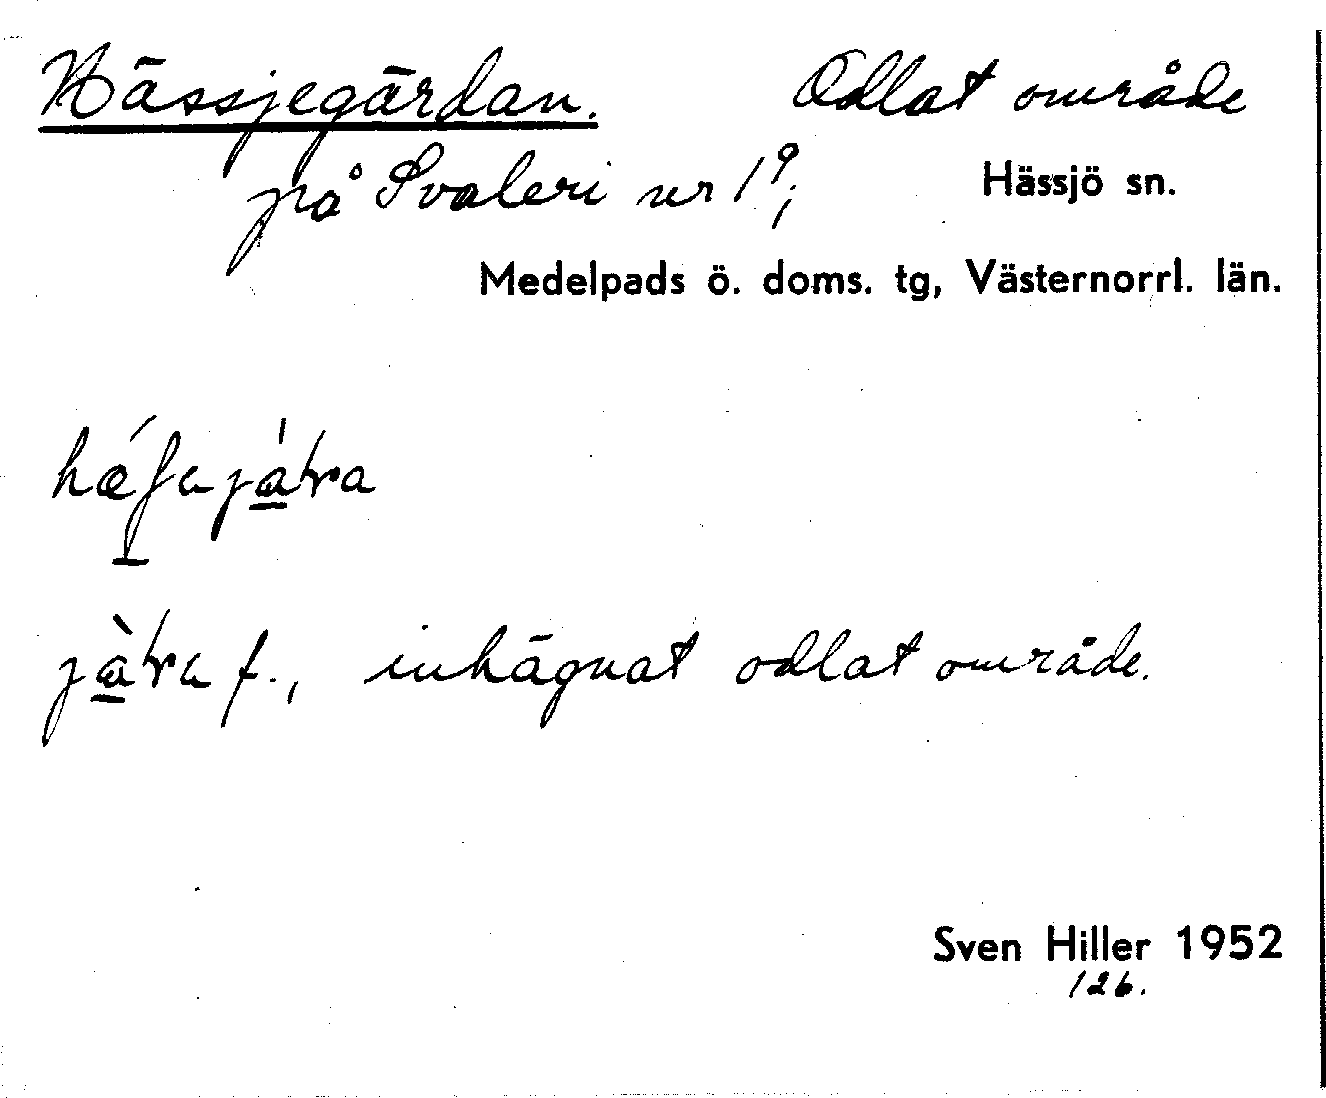 Hässjegärdan. Odlat område
på Svaleri nr 1⁹; Hässjö sn.
Medelpads ö. doms. tg, Västernorrl. län.
inhägnat odlat område.
Sven Hiller 1952
126.